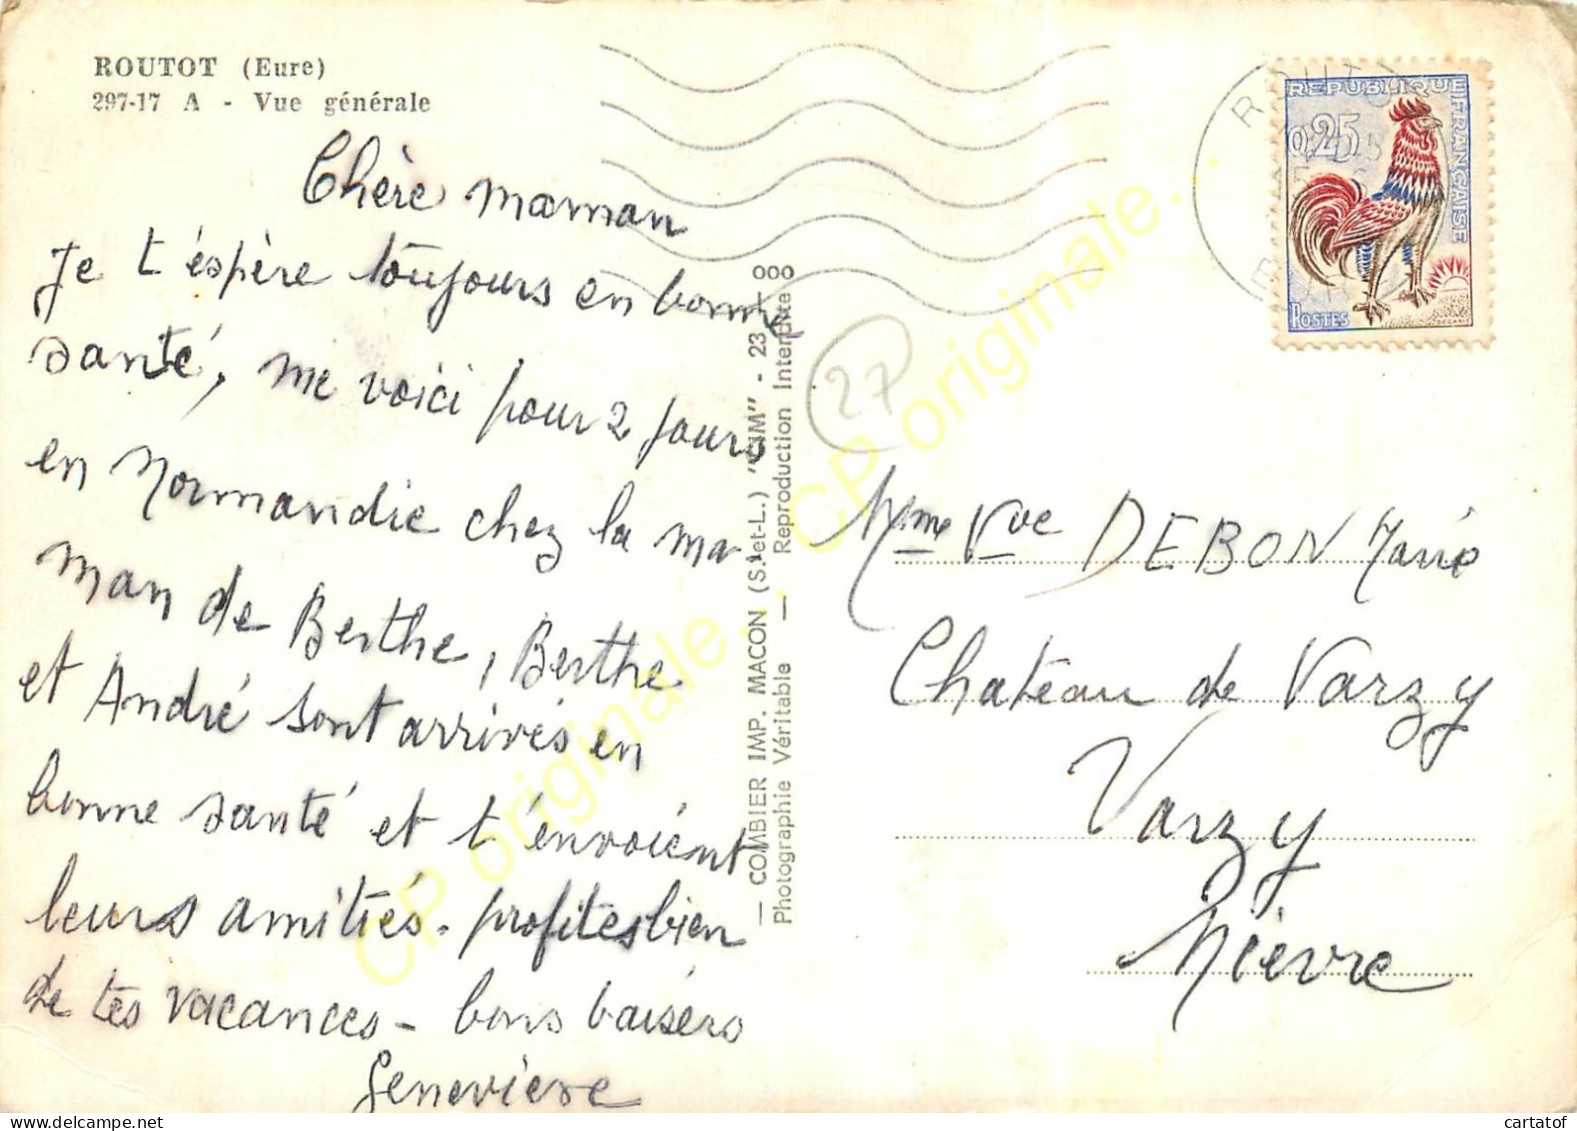 ROUTOT (Eure)
297-17 A - Vue générale
Chère maman
Je t'éspère toujours en bonne
santé, me voici pour 2 jours
en Normandie chez la ma-
man de Berthe, Berthe
et André sont arrivés en
bonne santé et t'énvoient
leurs amitiés. profites bien
de tes vacances - bons baisers
Geneviève
— COMBIER IMP. MACON (S.-et-L.) "CIM" - 23
Photographie Véritable — Reproduction Interdite
000
27
REPUBLIQUE FRANÇAISE
0,25
POSTES
DECARIS
Mme Vve DEBON Marie
Château de Varzy
Varzy
Nièvre
CP originale...
CP originale...
www.cartatof.com
cartatof